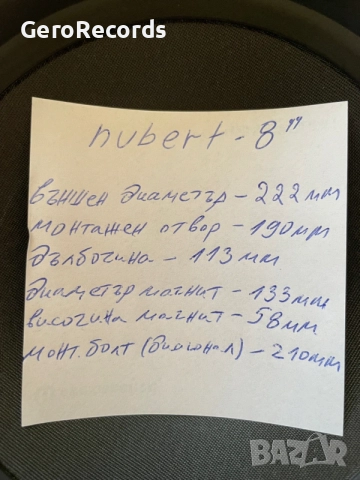 GeroRecords
nubert - 8"
външен диаметър - 222 мм
монтажен отвор - 190 мм
дълбочина - 113 мм
диаметър магнит - 133 мм
височина магнит - 58 мм
монт. болт (диагонал) - 210 mm
BAZAR